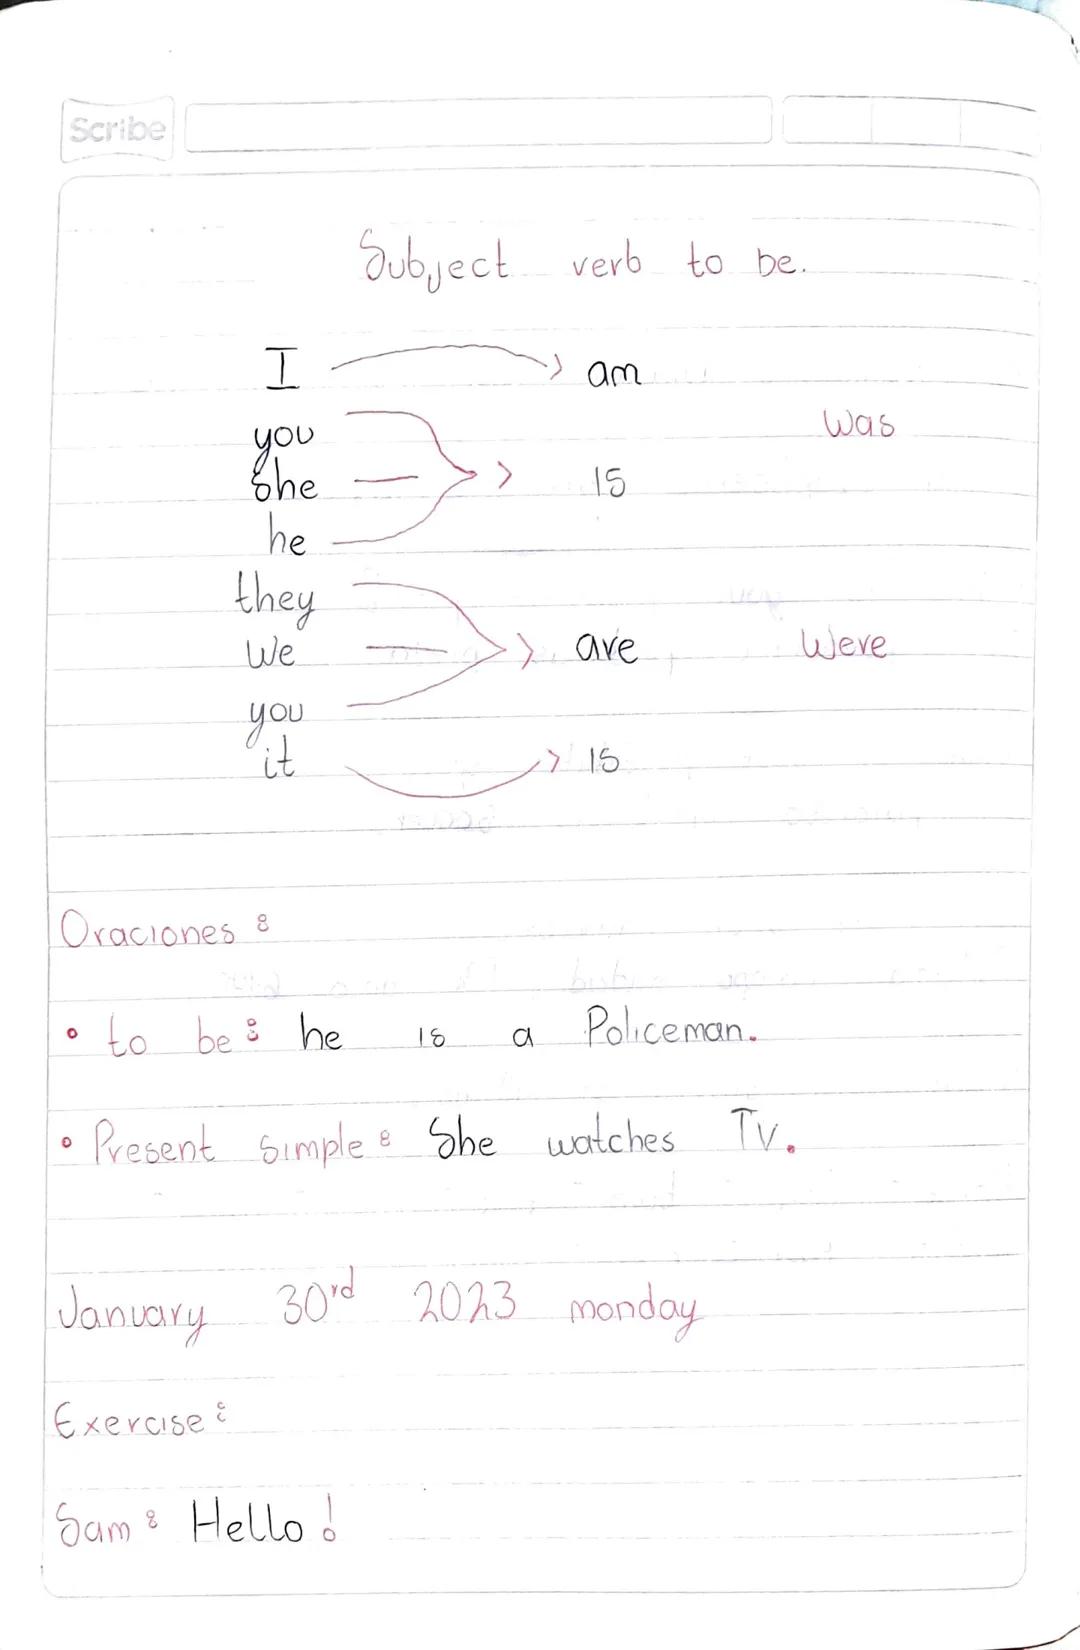 Scribe
Subject verb to be.
I am
you Was
She is
he
they
We are Were
you
it is
Oraciones:
• to be: he is a Policeman.
• Present simple: She watches TV.
January 30rd 2023 monday
Exercise:
Sam: Hello!